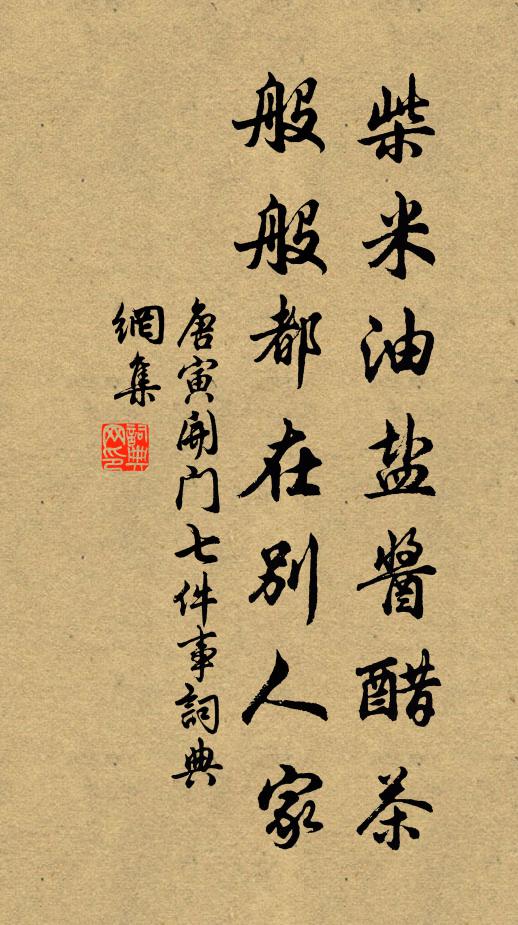 柴米油盐醬醋茶
般般都在别人家
唐寅開门七件事詞典
網集
詞典
网印